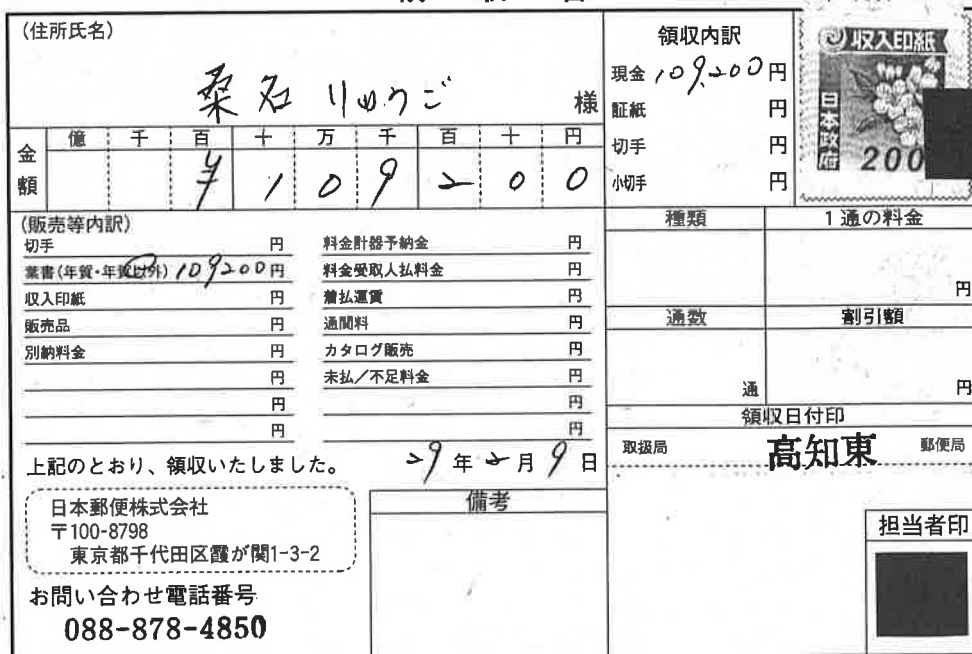 (住所氏名)
桑名 りゅうご 様
金額
億 千 百 十 万 千 百 十 円
¥ 1 0 9 2 0 0
領収内訳
現金 109,200 円
証紙 円
切手 円
小切手 円
収入印紙
日本政府
200
(販売等内訳)
切手 円
葉書(年賀・年賀以外) 109200円
収入印紙 円
販売品 円
別納料金 円
円
円
円
料金計器予納金 円
料金受取人払料金 円
着払運賃 円
通関料 円
カタログ販売 円
未払/不足料金 円
円
円
種類
1通の料金
円
通数
通
割引額
円
上記のとおり、領収いたしました。
29年2月9日
領収日付印
取扱局 高知東 郵便局
日本郵便株式会社
〒100-8798
東京都千代田区霞が関1-3-2
お問い合わせ電話番号
088-878-4850
備考
担当者印